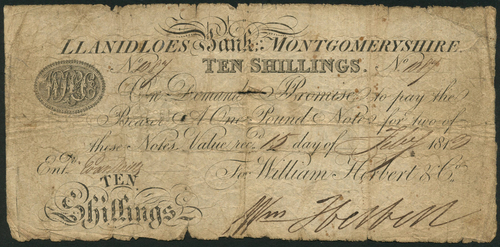 LLANIDLOES Bank MONTGOMERYSHIRE.
TEN SHILLINGS.
No No
On Demand I Promise to pay the
Bearer A One Pound Note for two of
these Notes. Value recd. 15 day of Feby 1813
Entd. For William Herbert & Co.
TEN
Shillings
Wm Herbert